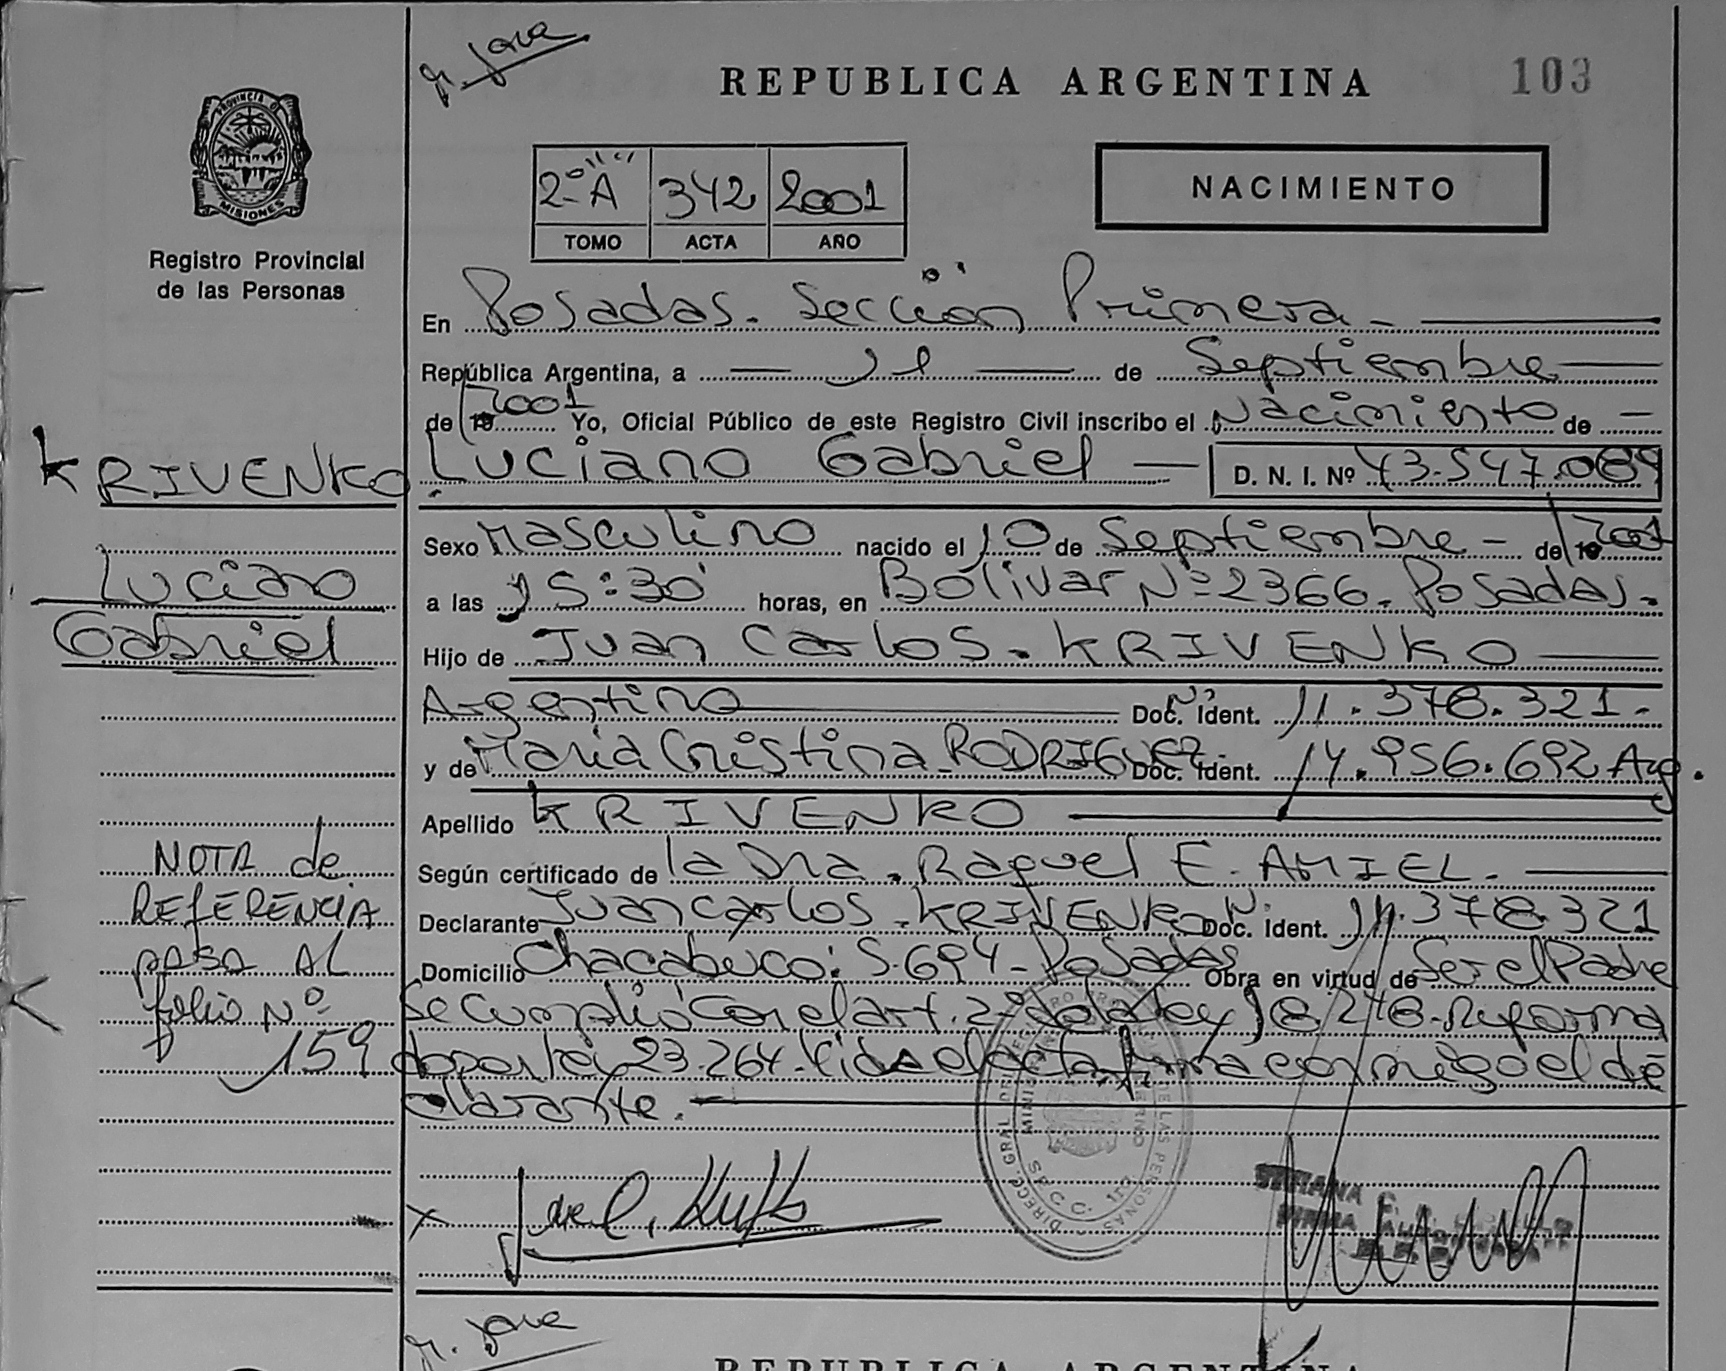 REPUBLICA ARGENTINA
103
PROVINCIA DE MISIONES
Registro Provincial
de las Personas
2º "A" 342 2001
TOMO ACTA AÑO
NACIMIENTO
En Posadas. Sección Primera
República Argentina, a 21 de Septiembre
de 19 2001 Yo, Oficial Público de este Registro Civil inscribo el Nacimiento de
KRIVENKO Luciano Gabriel D. N. I. Nº 43.547.069
Sexo Masculino nacido el 10 de Septiembre de 19 2001
Luciano
a las 15:30 horas, en Bolivar Nº 2366. Posadas.
Gabriel
Hijo de Juan Carlos. KRIVENKO
Argentino Doc. Ident. Nº 11.378.321.
y de Maria Cristina RODRIGUEZ Doc. Ident. 14.956.692 Arg.
Apellido KRIVENKO
Según certificado de la Dra. Raquel E. AMIEL.
Declarante Juan Carlos. KRIVENKO Doc. Ident. Nº 11.378.321
Domicilio Chacabuco: S.694 - Posadas Obra en virtud de Ser el Padre
Se cumplió con el art. 2º de la ley 18.248. Reforma
da por ley 23.264. Leida el acta firma conmigo el de
clarante.
NOTA de
REFERENCIA
pasa AL
folio Nº
159
REPUBLICA ARGENTINA